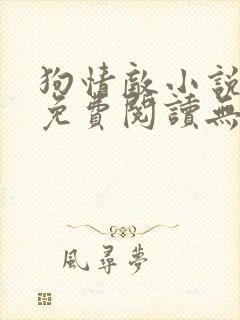 狗情敵小說
免費閱讀無
風尋夢